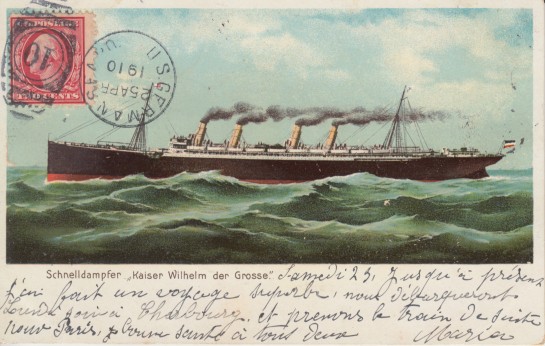 U.S. POSTAGE
TWO CENTS
10
U.S. GERMAN SEA
25 APR
1910
Schnelldampfer „Kaiser Wilhelm der Grosse".
Samedi 23, Jusqu'à présent
j'ai fait un voyage superbe, nous débarquerons
Lundi soir à Cherbourg et prenons le train de suite
pour Paris, bonne santé à tous deux
Maria